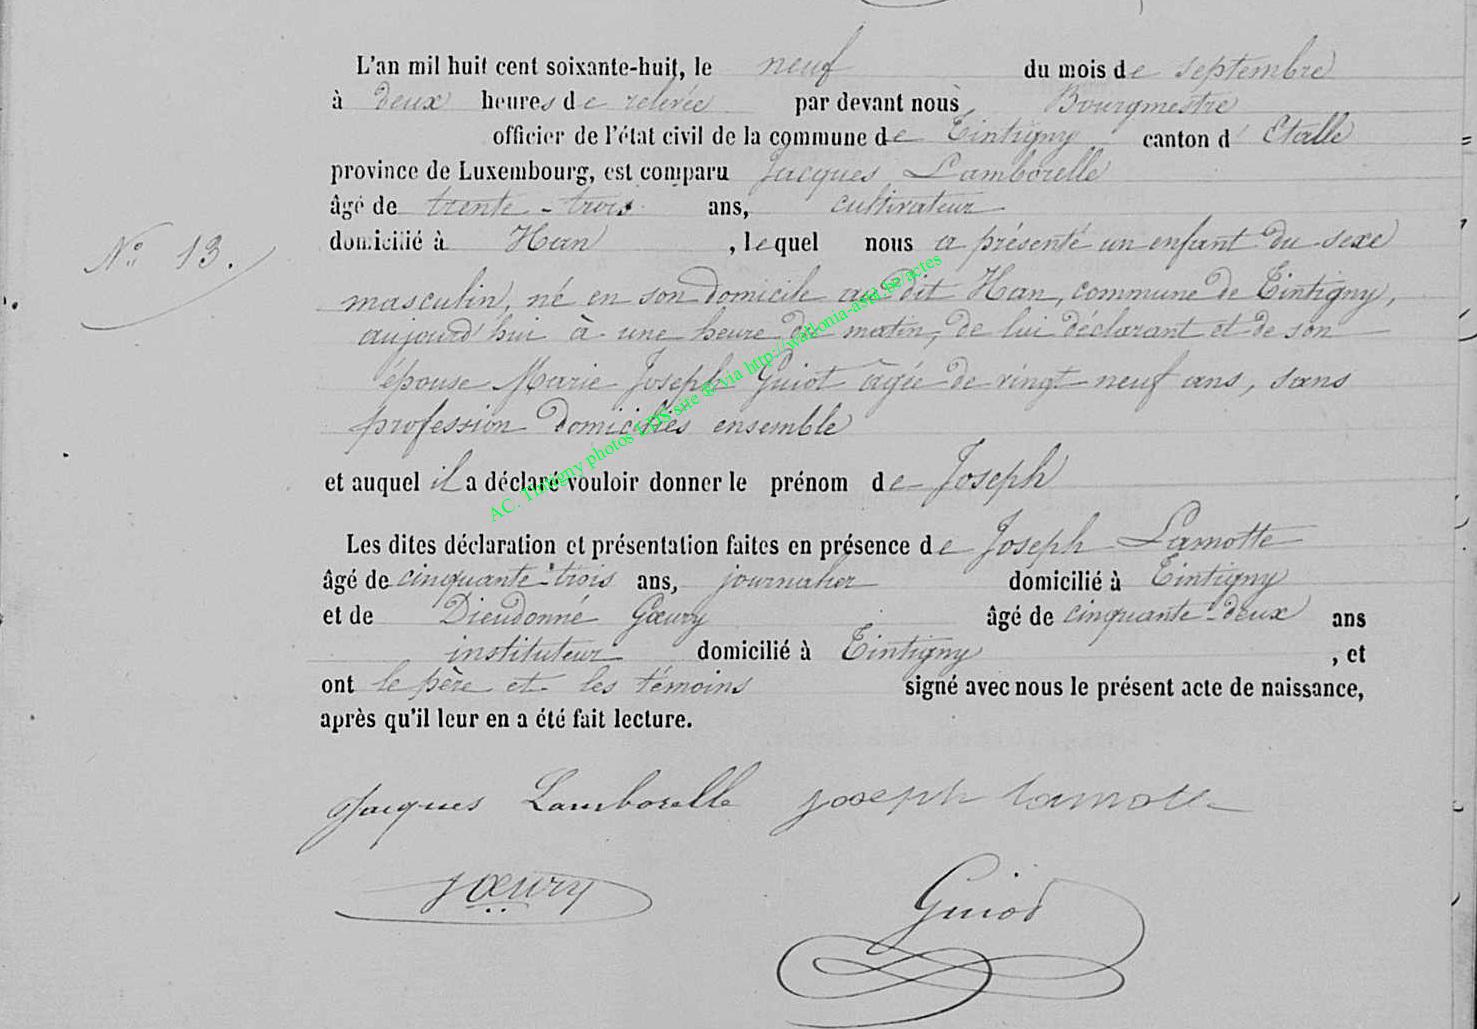 L'an mil huit cent soixante-huit, le neuf du mois de septembre
à deux heures de relevée par devant nous Bourgmestre
officier de l'état civil de la commune de Tintigny canton d' Etalle
province de Luxembourg, est comparu Jacques Lamborelle
âgé de trente-trois ans, cultivateur
domicilié à Han, lequel nous a présenté un enfant du sexe
N° 13.
masculin, né en son domicile au dit Han, commune de Tintigny,
aujourd'hui à une heure du matin, de lui déclarant et de son
épouse Marie Joseph Guiot âgée de vingt neuf ans, sans
profession domiciliés ensemble
et auquel il a déclaré vouloir donner le prénom de Joseph
AC. Tintigny photos LDS site & via http://wallonia-asbl.be/actes
Les dites déclaration et présentation faites en présence de Joseph Lamotte
âgé de cinquante-trois ans, journalier domicilié à Tintigny
et de Dieudonné Gœury âgé de cinquante-deux ans
instituteur domicilié à Tintigny, et
ont le père et les témoins signé avec nous le présent acte de naissance,
après qu'il leur en a été fait lecture.
Jacques Lamborelle joseph lamotte
gœury Guiot